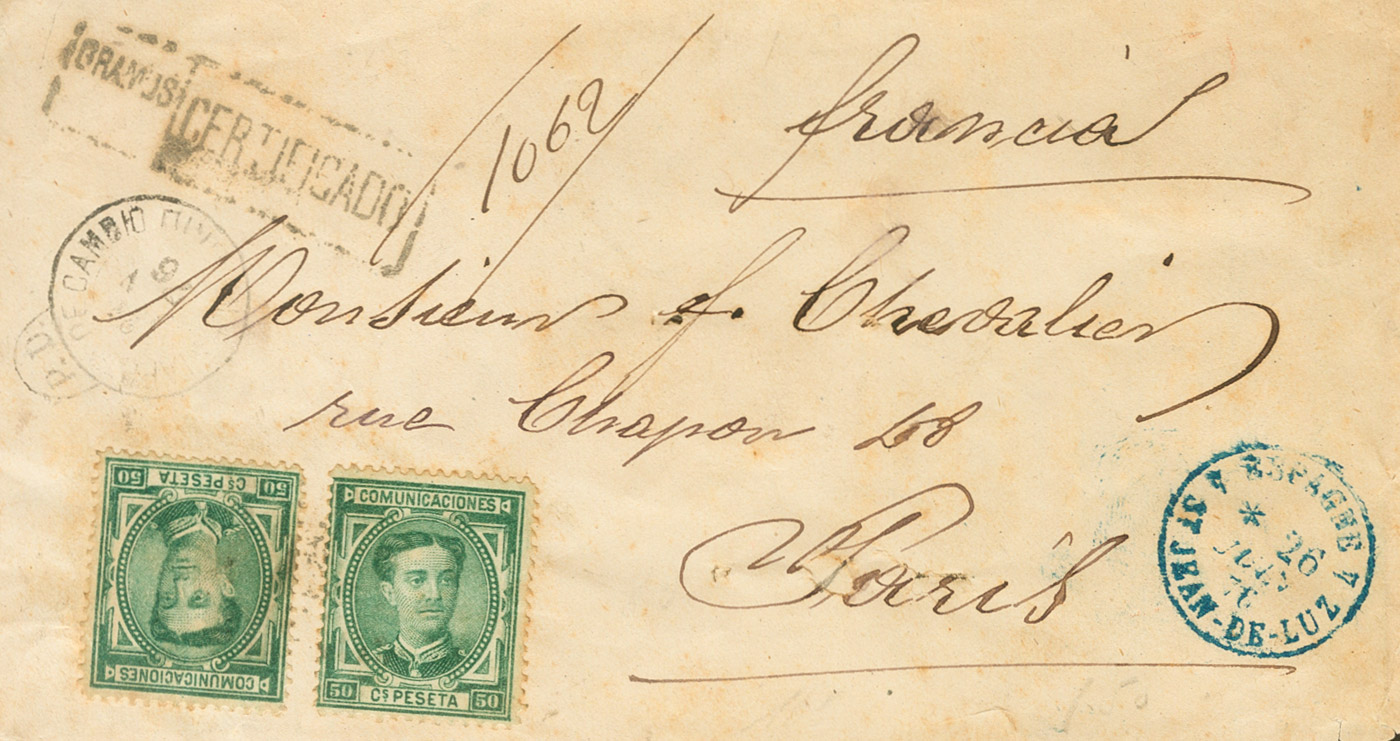 GRAMOS CERTIFICADO
1062
francia
DE CAMBIO
P.D.
Monsieur J. Chevalier
rue Chapon
Paris
50 Cs PESETA 50
COMUNICACIONES
COMUNICACIONES
50 Cs PESETA 50
ESPAGNE
26
76
ST JEAN-DE-LUZ